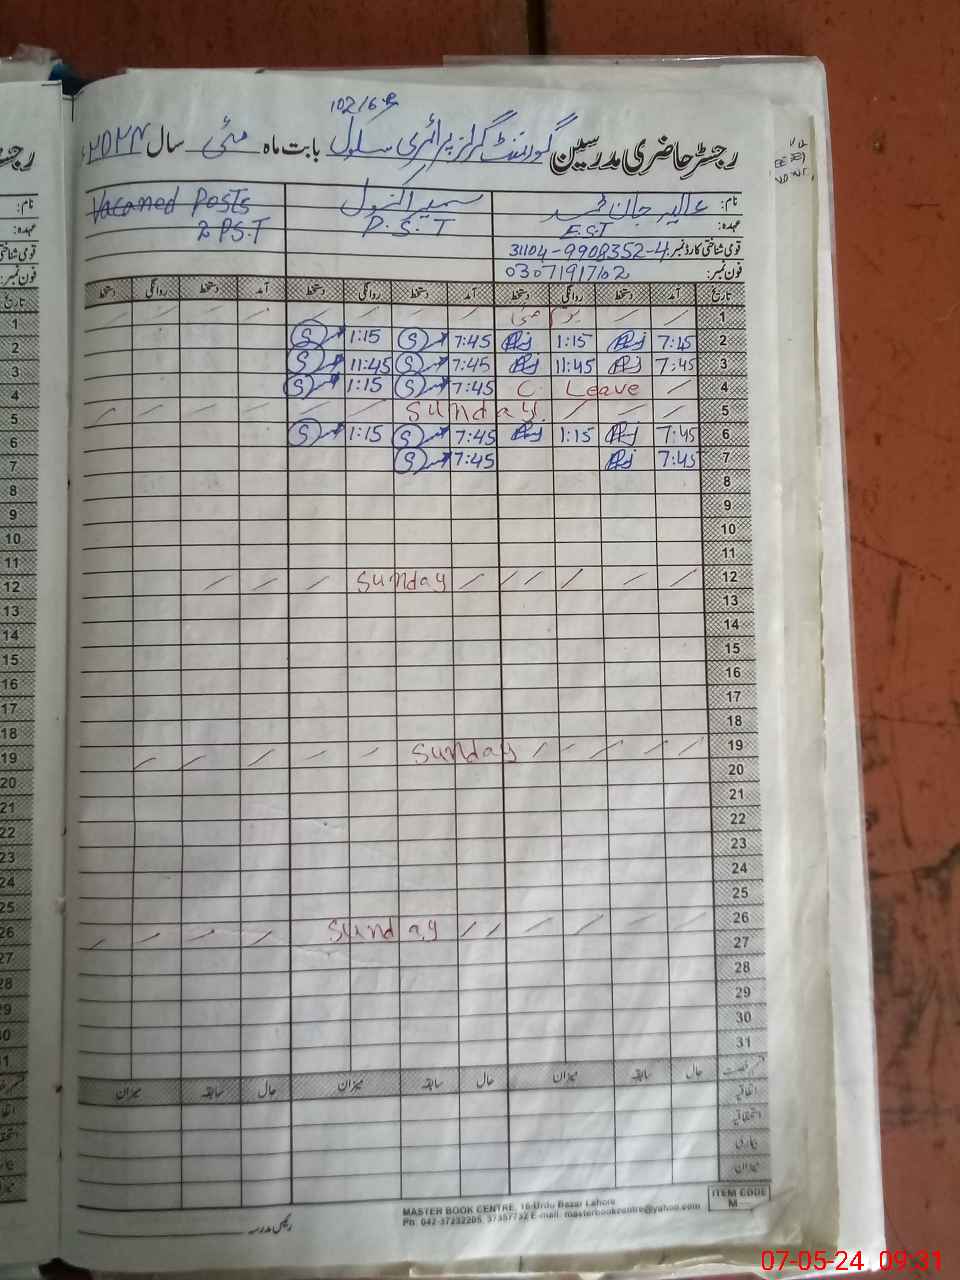 102/6R
رجسٹر حاضری مدرسین گورنمنٹ گرلز پرائمری سکول بابت ماہ مئی سال ۲۰۲۴ء
نام: عالیہ جان
Vacaned Posts
عہدہ: E.S.T P.S.T 2 PS.T
قومی شناختی کارڈ نمبر: 31104-9908352-4
فون نمبر: 03071917602
تاریخ آمد دستخط روانگی دستخط آمد دستخط روانگی دستخط آمد دستخط روانگی دستخط
1 یکم مئی
2 7:45 1:15 7:45 1:15
3 7:45 11:45 7:45 11:45
4 C. Leave 7:45 1:15
5 Sunday
6 7:45 1:15 7:45 1:15
7 7:45 7:45
8
9
10
11
12 Sunday
13
14
15
16
17
18
19 Sunday
20
21
22
23
24
25
26 Sunday
27
28
29
30
31
حال سابقہ میزان حال سابقہ میزان حال سابقہ میزان
اتفاقیہ
استحقاقیہ
بیماری
میزان
رئیس مدرسہ
MASTER BOOK CENTRE, 16-Urdu Bazar Lahore
Ph: 042-37232205, 37357732 E-mail: masterbookcentre@yahoo.com
ITEM CODE
M
07-05-24 09:31